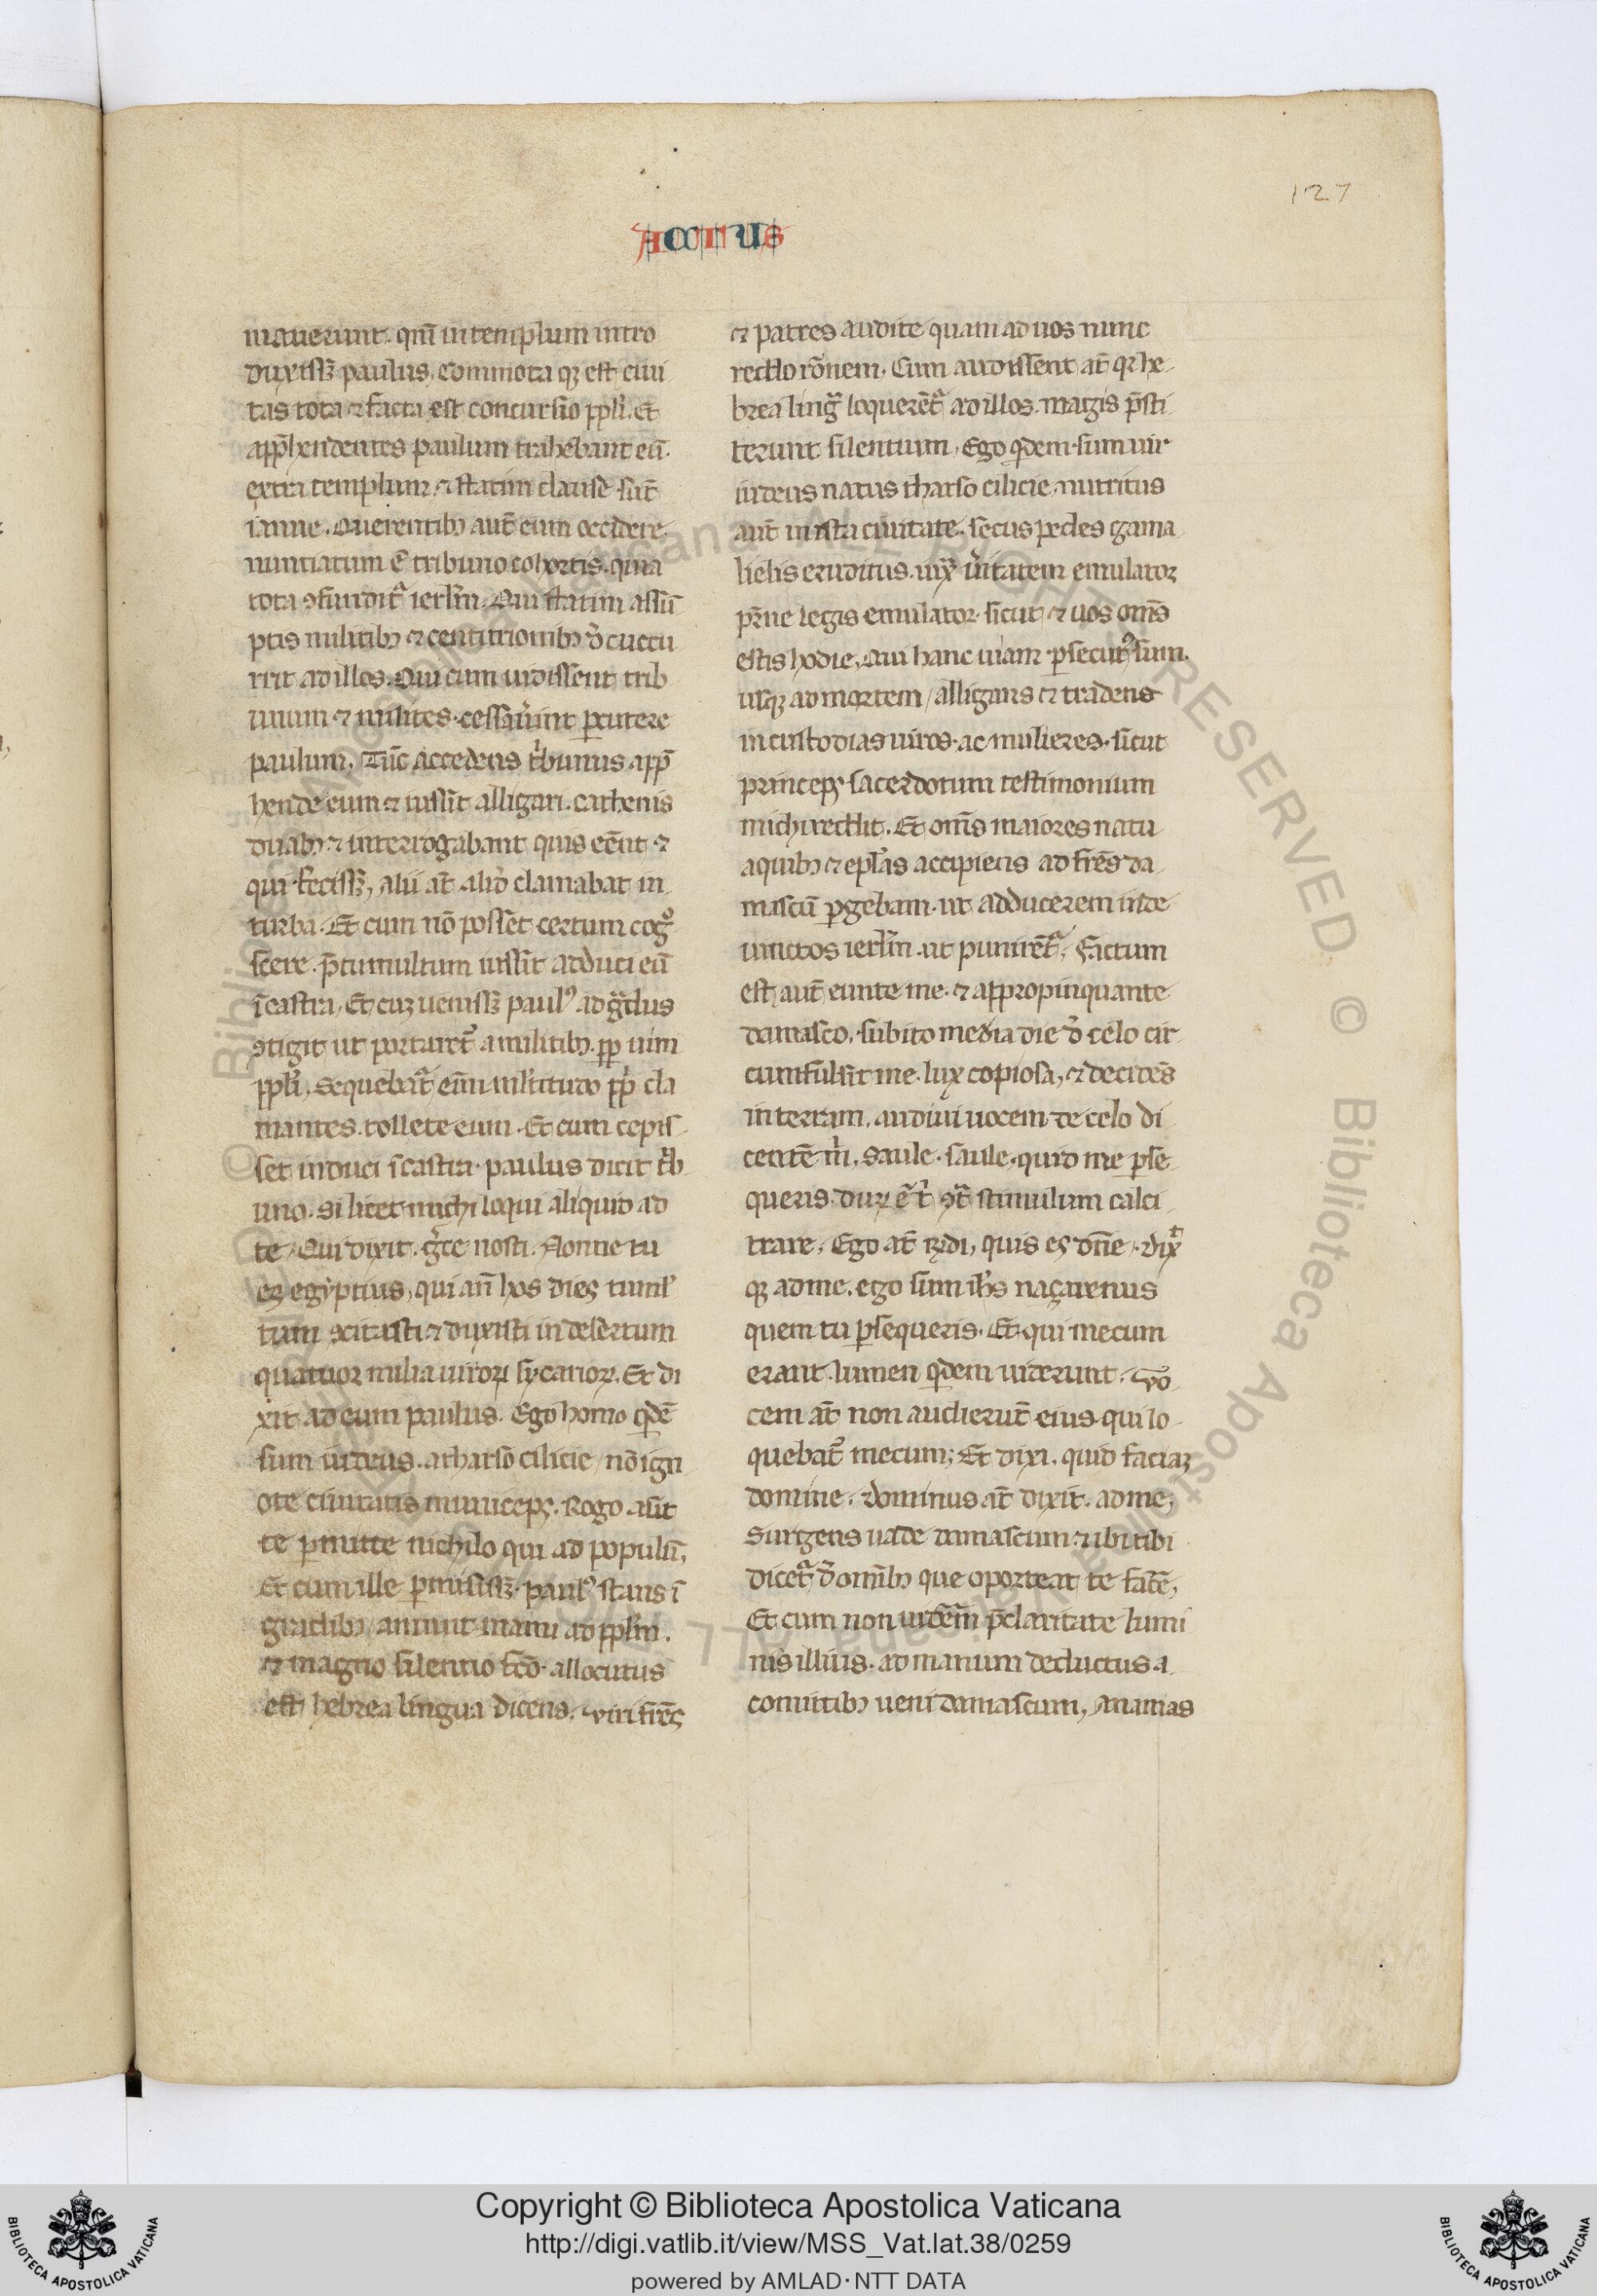 127
ACTUS
mauerunt. qm̄ in templum intro
duxissꝫ paulus. Commota qꝫ est ciui
tas tota ⁊ facta est concursio ppl̓i. Et
app̄hendentes paulum trahebant eū.
extra templum. ⁊ statim clause sūt
ianue. Querentibꝫ aut̄ eum occidere.
nuntiatum ē tribuno cohortis. quia
tota ꝯfundit᷑ ierl̄m. Qui statim assū
ptis militibꝫ ⁊ centurionibꝫ d̓cuccu
rrit ad illos. Qui cum uidissent trib
unum ⁊ milites. cessau̓unt ꝑcutere
paulum. Tūc accedens t̓bunus app̄
hende eum ⁊ iussit alligari. cathenis
duabꝫ ⁊ interrogabant quis eēnt ⁊
qui fecissꝫ, alii at̄ aliđ clamabat in
turba. Et cum nō posset certum cogº
scere. p̄ tumultum iussit adduci eū
ī castra, Et cuꝫ uenissꝫ paulꝰ ad gͣdus
ꝯtigit ut portaret᷑ a militibꝫ. ꝓp uim
ppl̓i. Sequebat᷑ enim ml̓titudo ppl̓i cla
mantes. tollete eum. Et cum cepis-
set induci ī castra. paulus dicit t̓b
uno. Si licet michi loqui aliquid ad
te. Qui dixit. gͣce nosti. Nonne tu
es egyptius, qui an̄ hos dies tuml̓
tum ꝯcitasti ⁊ duxisti in desertum
quatuor milia uiroꝝ sycarioꝝ. Et di
xit ad eum paulus. Ego homo qͥdē
sum iudeus. a tharso cilicie, nō ign
ote ciuitatis municeps. Rogo aūt
te ꝑmitte michi lo qui ad populū,
Et cum ille ꝑmisissꝫ. paulꝰ stans ī
gradibꝫ, annuit manu ad ppl̄m.
⁊ magno silentio fc̄o. allocutus
est hebrea lingua dicens. viri fr̄es
⁊ patres audite quam ad uos nunc
reddo rōnem. Cum audissent at̄ qꝛ he-
brea lingͣ loquerēt᷑ ad illos. magis p̄sti
terunt silentium, Ego qͥdem sum uir
iudeus natus tharso cilicie, nutritus
aut̄ in ista ciuitate. secus pedes gama
lielis eruditus. iuxͣ u̓itatem emulator
pr̄ne legis emulator. sicut ⁊ uos om̄s
estis hodie. Qui hanc uiam ꝑsecutꝰ sum.
usqꝫ ad mortem, alligans ⁊ tradens
in custodias uiros. ac mulieres. sicut
princeps sacerdotum testimonium
michi reddit. Et om̄s maiores natu
a quibꝫ ⁊ epl̓as accipiens ad fr̄es da
mascū ꝑgebam. ut adducerem inde
uinctos ierl̄m. ut punirēt᷑, Factum
est aut̄ eunte me. ⁊ appropinquante
damasco. subito media die d̓ celo cir
cumfulsit me. lux copiosa, ⁊ decidēs
in terram. audiui uocem de celo di
centē m̓. Saule. saule. quid me ꝑse
queris. duꝝ ē t̓ ꝯtͣ stimulum calci
trare. Ego at̄ rn̄di, quis es dn̄e. dixͭ
qꝫ ad me. ego sum ih̄s naçarenus
quem tu ꝑsequeris. Et qui mecum
erant. lumen qͥdem uiderunt. vo
cem at̄ non audierūt eius qui lo-
quebat᷑ mecum; Et dixi. quid faciaꝫ
domine. dominus at̄ dixit. ad me,
Surgens uade damascum ⁊ ibi tibi
dicet᷑ d̓ om̄ibꝫ que oporteat te facē,
Et cum non uiderē̄m p̄ claritate lumi
nis illius. ad manum deductus a
comitibꝫ ueni damascum, Ananias
Copyright © Biblioteca Apostolica Vaticana
http://digi.vatlib.it/view/MSS_Vat.lat.38/0259
powered by AMLAD·NTT DATA
BIBLIOTECA APOSTOLICA VATICANA
BIBLIOTECA APOSTOLICA VATICANA